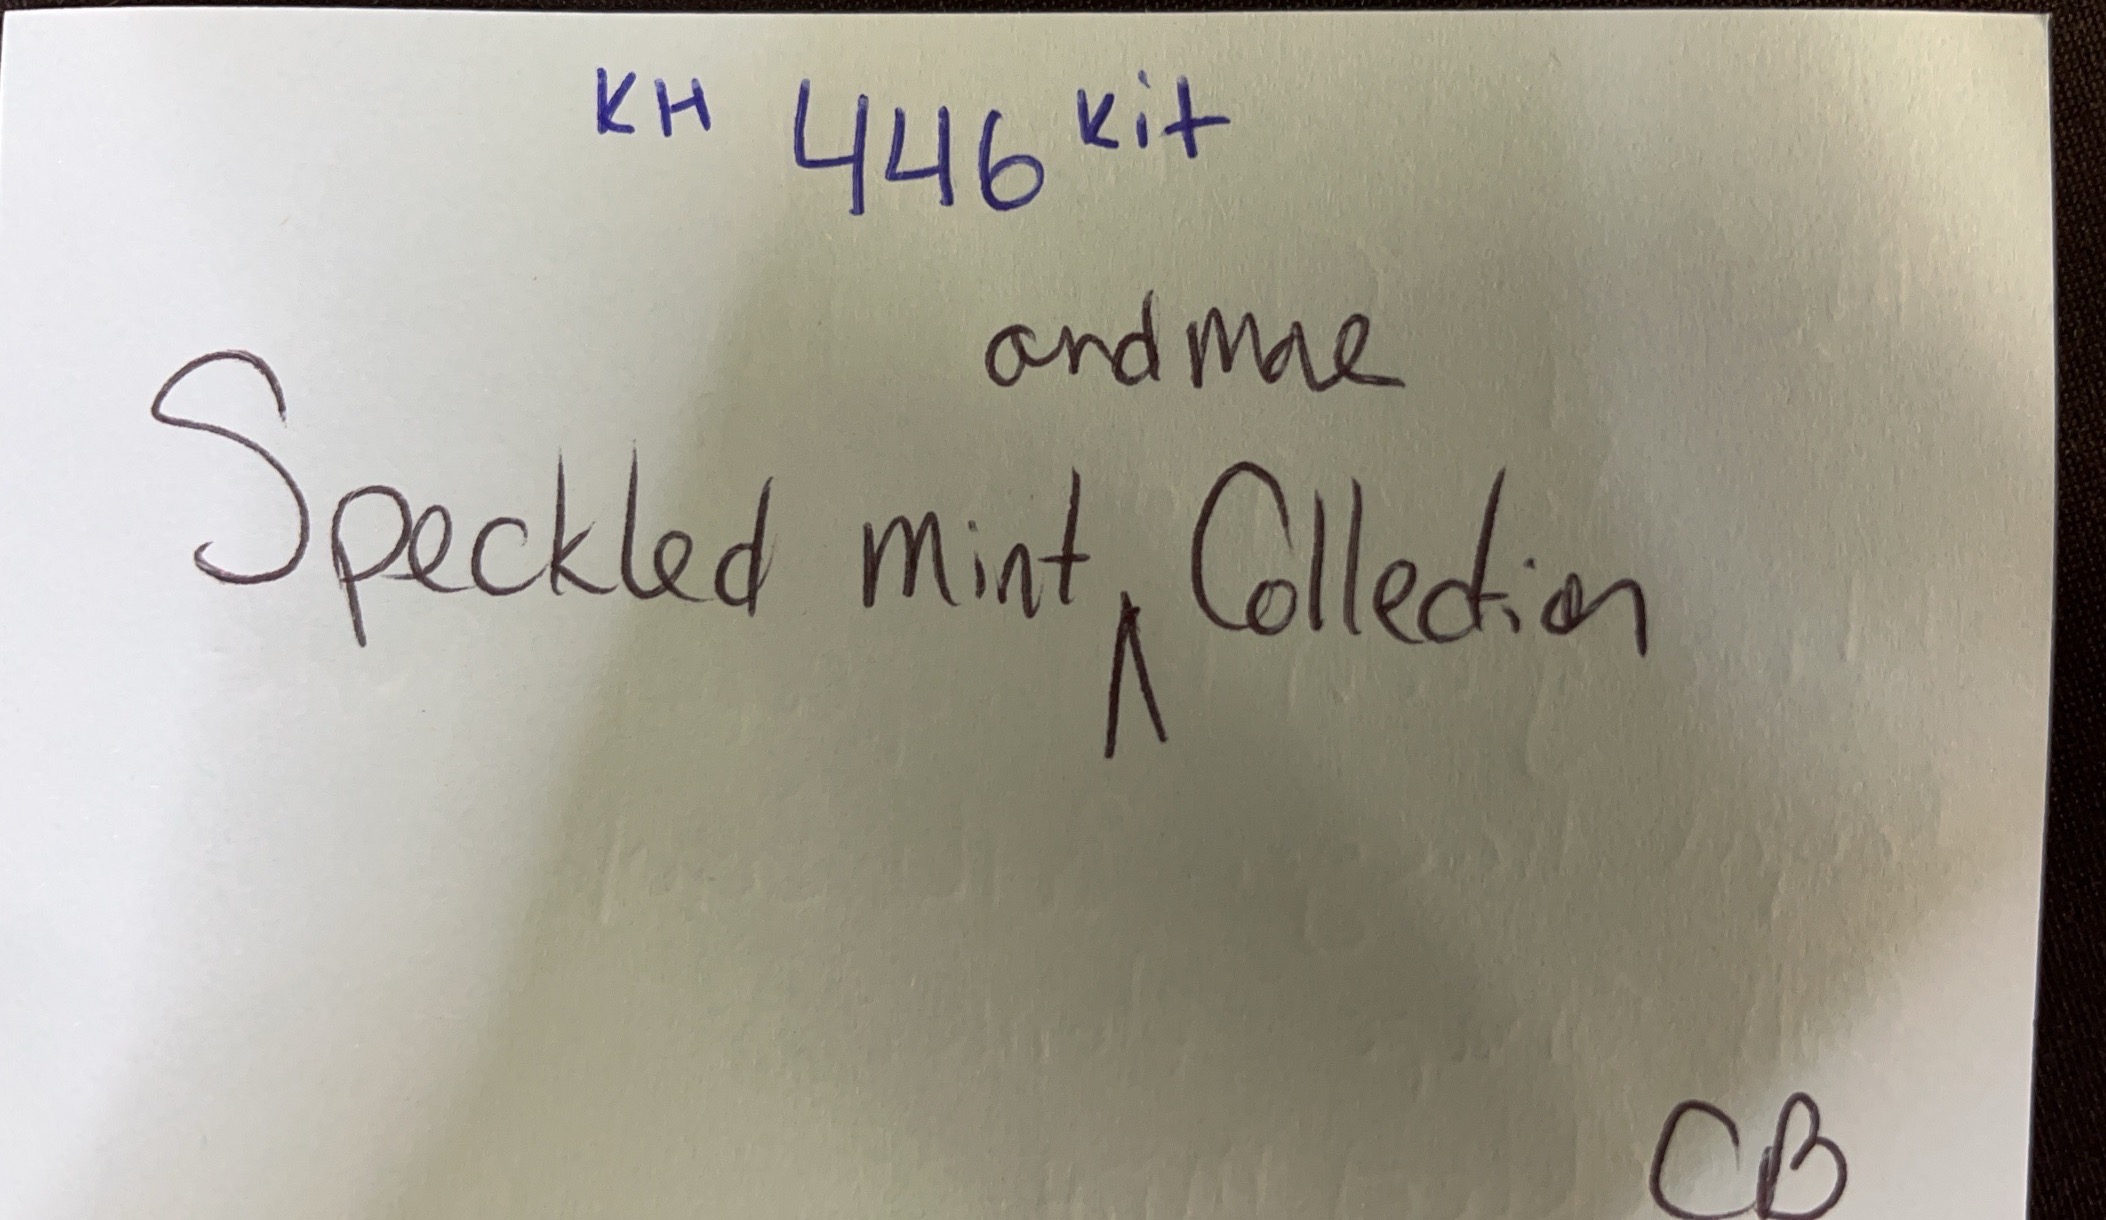 KH 446 Kit
and more
Speckled mint ^ Collection
CB